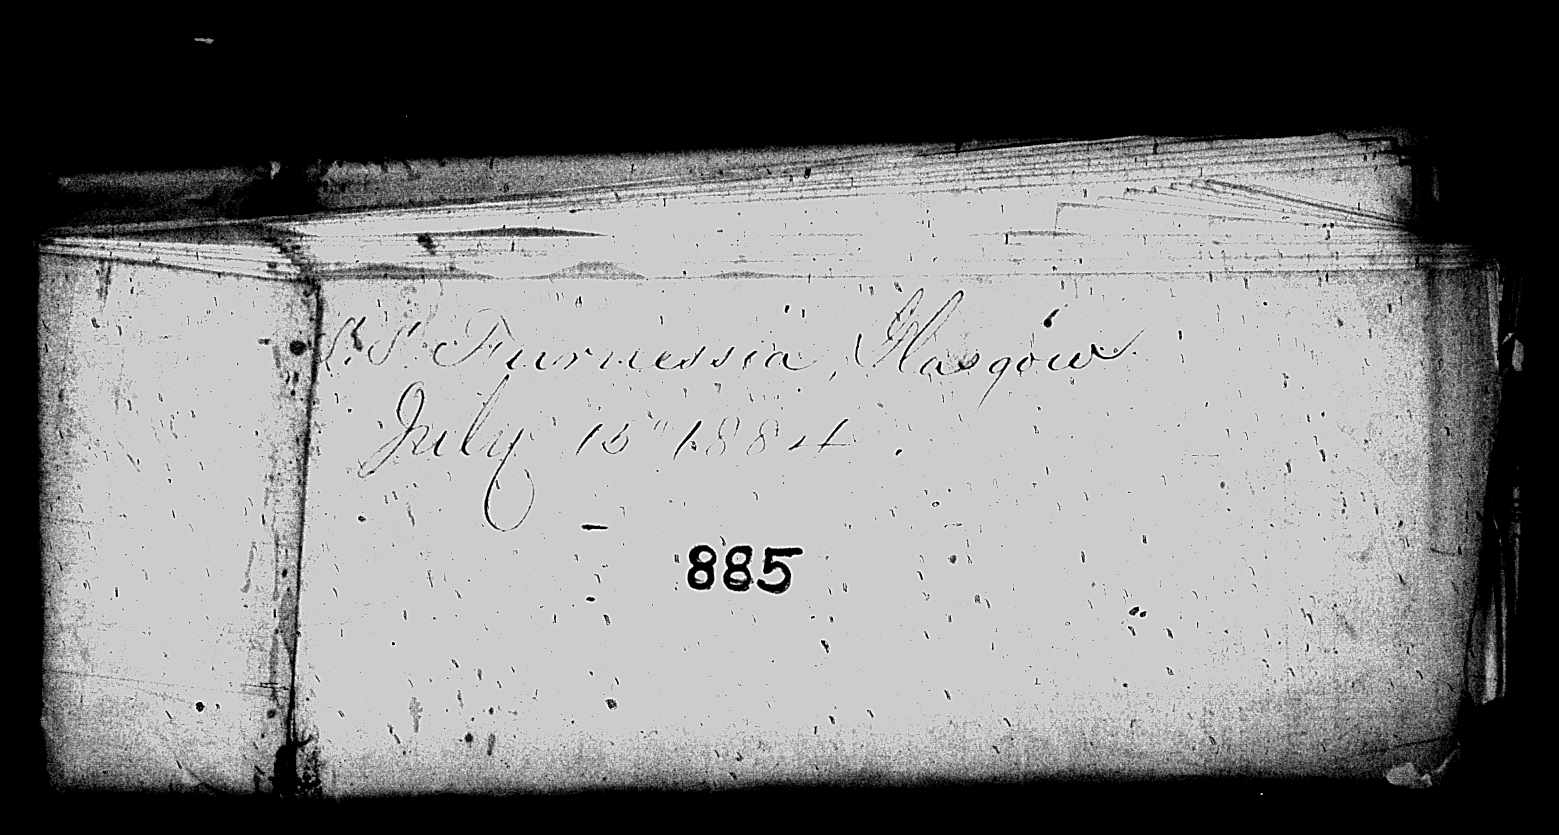 S.S. Furnessia, Glasgow
July 15" 1884.
885